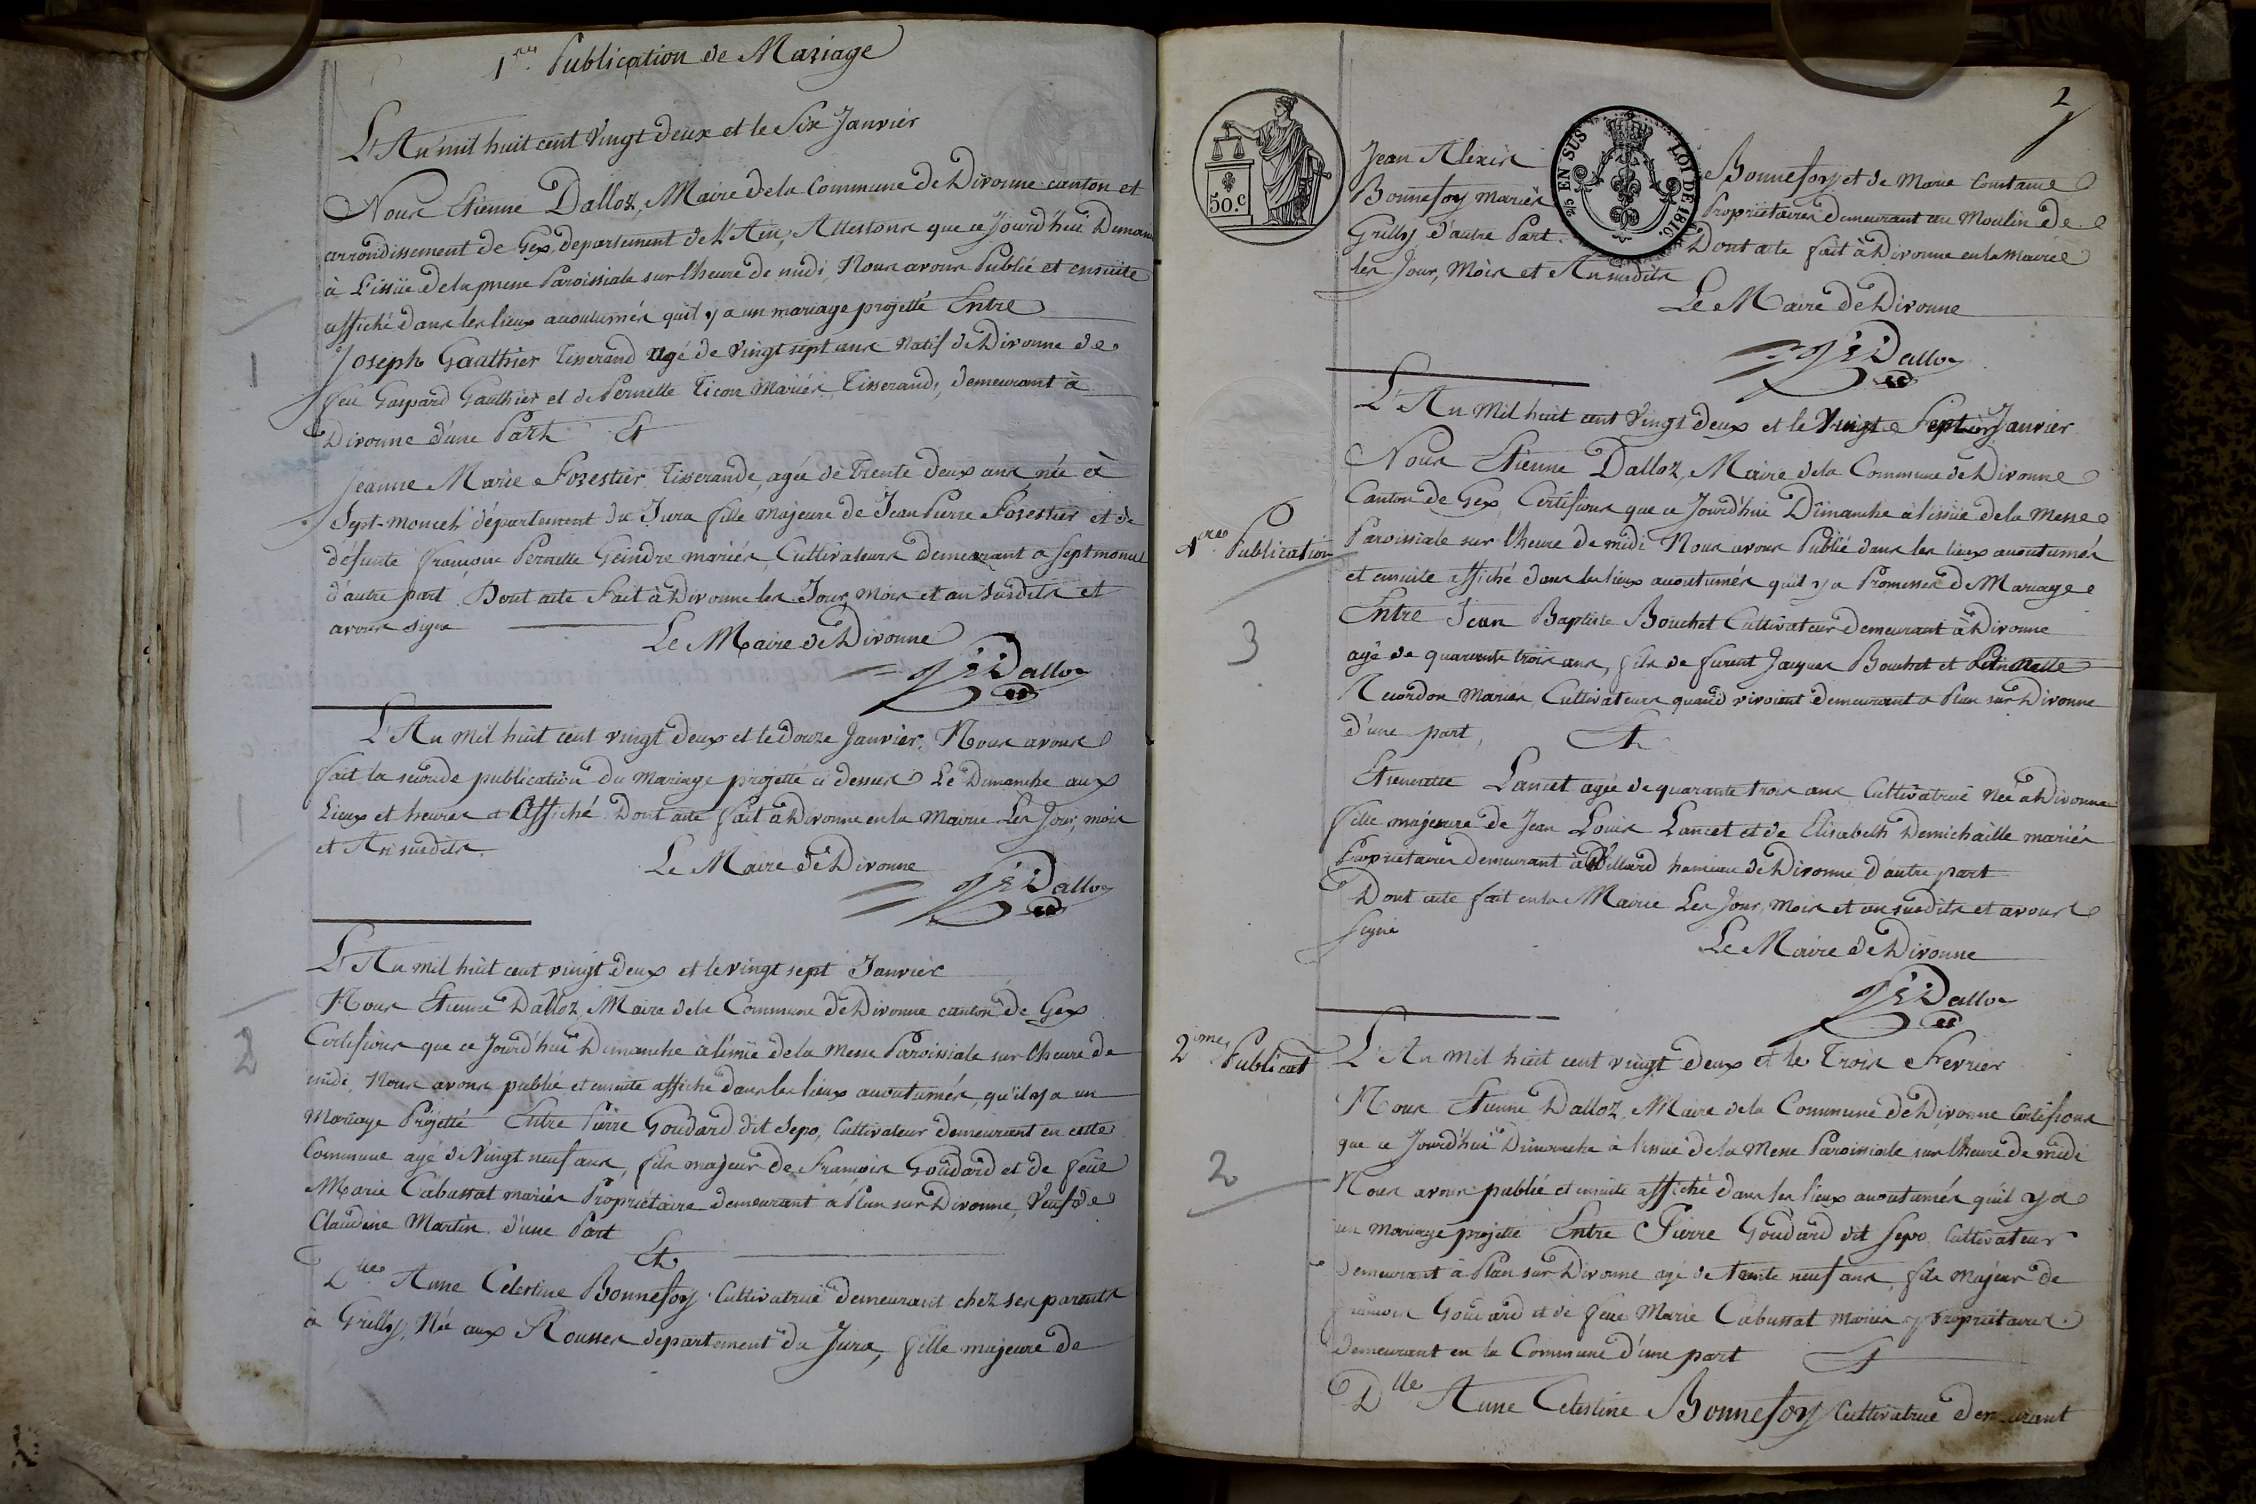 1re Publication de Mariage
L'An mil huit cent vingt deux et le Six Janvier
Nous Etienne Dalloz, Maire de la Commune de Divonne canton et
arrondissement de Gex, departement de l'Ain, Attestons que ce Jourd'hui Diman
à l'issüe de la messe Paroissiale sur l'heure de midi, Nous avons Publié et ensuite
affiché dans les lieux acoutumés quil y a un mariage projetté Entre
Joseph Gauthier Tisserand agé de vingt sept ans Natif de Divonne de
feu Gaspard Gauthier et de Pernette Ticon Mariés, Tisserands, demeurant à
Divonne d'une Part Et
Jeanne Marie Forestier Tisserande, agée de Trente deux ans, née à
Sept-moncel département du Jura fille majeure de Jean Pierre Forestier et de
défunte françoise Pernette Geindre mariés, Cultivateurs demeurant a Septmoncel
d'autre part. Dont acte Fait à Divonne les Jour, mois et an susdits et
avons signé
Le Maire de Divonne
Dalloz
L'An mil huit cent vingt deux et le douze Janvier. Nous avons
fait la seconde publication du mariage projetté ci dessus Le Dimanche aux
Lieux et heures et Affiché Dont acte fait à Divonne en la Mairie Les Jour, mois
et An susdits.
Le Maire de Divonne
Dalloz
L'An mil huit cent vingt deux et le vingt sept Janvier
Nous Etienne Dalloz, Maire de la Commune de Divonne canton de Gex
Certifions que ce Jourd'hui Dimanche à l'issüe de la Messe Paroissiale sur l'heure de
midi, Nous avons publié et ensuite affiché dans les lieux acoutumés, qu'il y a un
Mariage Projetté Entre Pierre Goudard dit Sepo, Cultivateur demeurant en cette
Commune agé de Vingt neuf ans, fils majeur de François Goudard et de feüe
Marie Cabussat mariés Propriétaire demeurant à Plan sur Divonne, Veuf de
Claudine Martin d'une Part
Et
Dlle Anne Celestine Bonnefoy Cultivatrice demeurant chez ses parents
à Grilly, Née aux Rousses departement du Jura, fille majeure de
2
50.c
2/5 EN SUS LOI DE 1816.
Jean Alexis Bonnefoy et de Marie Constance
Bonnefoy mariés Propriétaires demeurant au Moulin de
Grilly d'autre Part. Dont acte fait à Divonne en la Mairie
les Jour, Mois et An susdits
Le Maire de Divonne
Dalloz
L'An Mil huit cent Vingt deux et le Vingt Sept Janvier
Nous Etienne Dalloz, Maire de la Commune de Divonne
Canton de Gex, Certifions que ce Jourd'hui Dimanche à l'issüe de la Messe
1re Publication
Paroissiale sur l'heure de midi Nous avons Publié dans les lieux acoutumés
et ensuite affiché dans les lieux acoutumés quil y a Promesses de Mariage
Entre Jean Baptiste Bouchet Cultivateur demeurant à Divonne
3
agé de quarante trois ans, fils de furent Jacques Bouchet et Pernette
Recordon Mariés, Cultivateurs quand vivoient demeurant a Plan sur Divonne
d'une part, Et
Etiennette Lancet agée de quarante trois ans Cultivatrice Née a Divonne
fille majeure de Jean Louis Lancet et de Elisabeth Demichaille mariés
Propriétaires demeurant à Villard hameau de Divonne d'autre part
Dont acte fait en la Mairie Les Jour, Mois et an susdits et avons
signé
Le Maire de Divonne
Dalloz
2ime Publicat
L'An mil huit cent vingt deux et le Trois Fevrier
Nous Etienne Dalloz, Maire de la Commune de Divonne Certifions
que ce Jourd'hui Dimanche à l'issüe de la Messe Paroissiale sur l'heure de midi
2
Nous avons publié et ensuite affiché dans les lieux acoutumés quil y a
un Mariage projetté Entre Pierre Goudard dit Sepo Cultivateur
Demeurant à Plan sur Divonne agé de trente neuf ans, fils Majeur de
François Goudard et de feue Marie Cabussat mariés Propriétaires
demeurant en la Commune d'une part Et
Dlle Anne Celestine Bonnefoy Cultivatrice demeurant